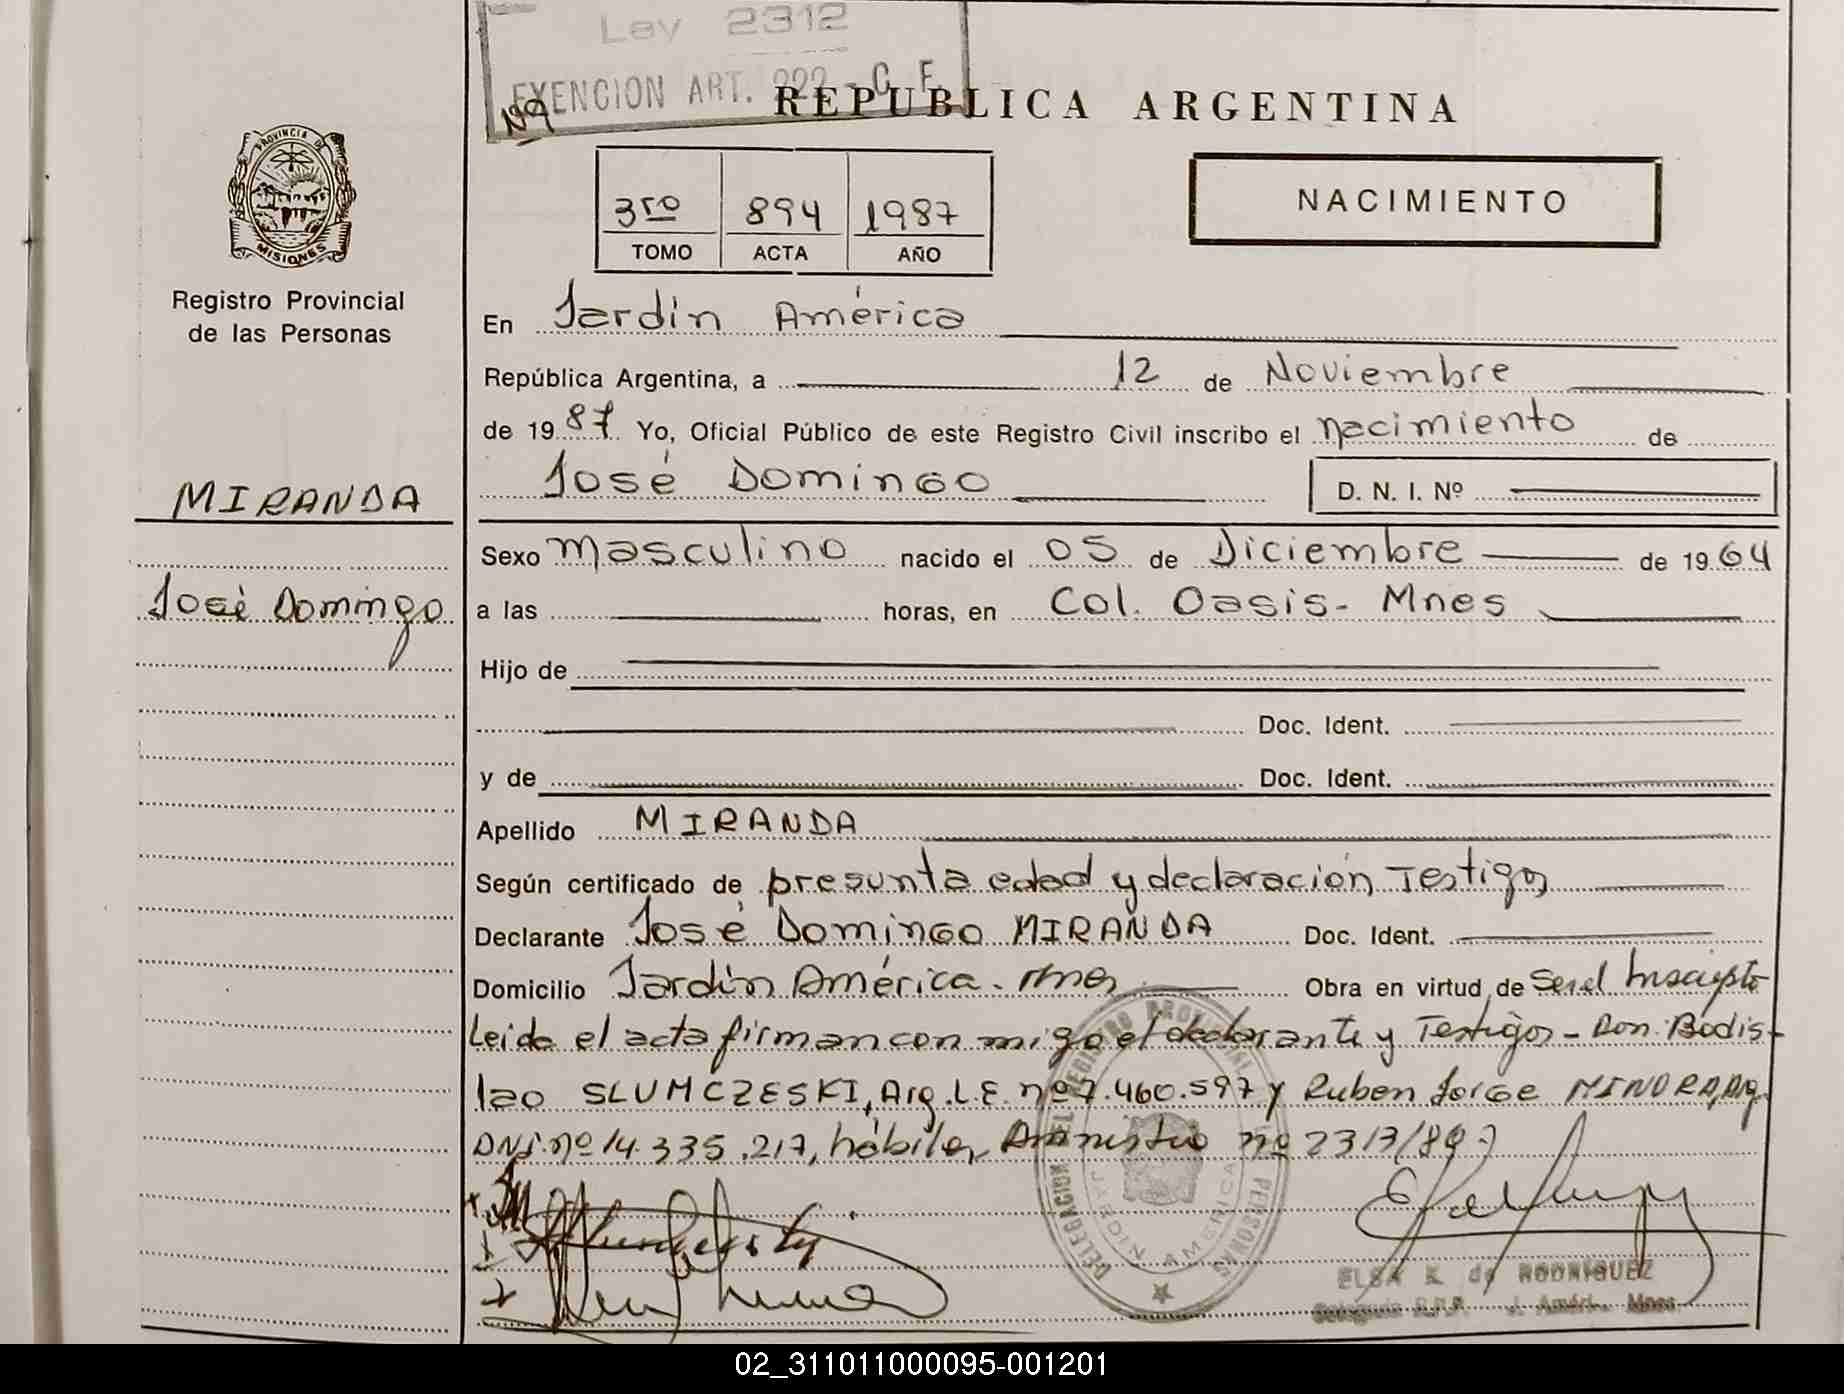 Ley 2312
EXENCION ART. 222 - C. F.
REPUBLICA ARGENTINA
PROVINCIA DE
MISIONES
Registro Provincial
de las Personas
3ro 894 1987
TOMO ACTA AÑO
NACIMIENTO
En Jardín América
República Argentina, a 12 de Noviembre
de 1987. Yo, Oficial Público de este Registro Civil inscribo el nacimiento de
José Domingo D. N. I. Nº
MIRANDA
José Domingo
Sexo masculino nacido el 05 de Diciembre de 1964
a las horas, en Col. Oasis - Mnes
Hijo de
Doc. Ident.
y de Doc. Ident.
Apellido MIRANDA
Según certificado de presunta edad y declaración Testigos
Declarante José Domingo MIRANDA Doc. Ident.
Domicilio Jardín América - Mnes Obra en virtud de Ser el Inscripto
Leida el acta firman con migo el declarante y Testigos - Don Bodis-
lao SLUMCZESKI, Arg. L.E. nº 7.460.597 y Ruben Jorge MINORA, Arg.
DNI. nº 14.335.217, hábiles, nº 2313/87
DELEGACION DEL REGISTRO PROVINCIAL PERSONAS
JARDIN AMERICA
ELSA K. de RODRIGUEZ
02_311011000095-001201